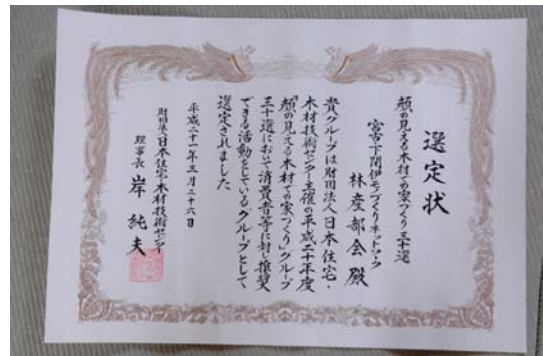 選定状
顔の見える木材での家づくり三十選
宮古・下閉伊モノづくりネットワーク
林産部会殿
貴グループは財団法人日本住宅・
木材技術センター主催の平成二十年度
「顔の見える木材での家づくり」グループ
三十選において消費者等に対し推奨
できる活動をしているグループとして、
選定されました
平成二十一年三月二十六日
財団法人日本住宅・木材技術センター
理事長 岸 純夫